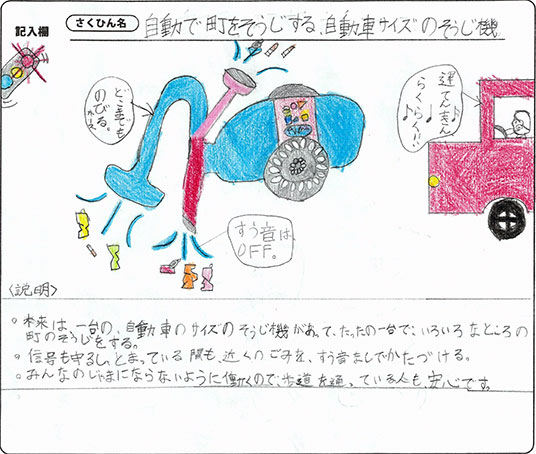 記入欄
さくひん名
自動で町をそうじする、自動車サイズのそうじ機
どこまでも
のびる。
ホース
運てんさん
らくらく!!
すう音は
OFF。
〈説明〉
。本来は、一台の、自動車のサイズのそうじ機があって、たったの一台で、いろいろなところの
町のそうじをする。
。信号も守るし、とまっている間も、近くのごみを、すう音なしでかたづける。
。みんなのじゃまにならないように働くので、歩道を通っている人も、安心です。